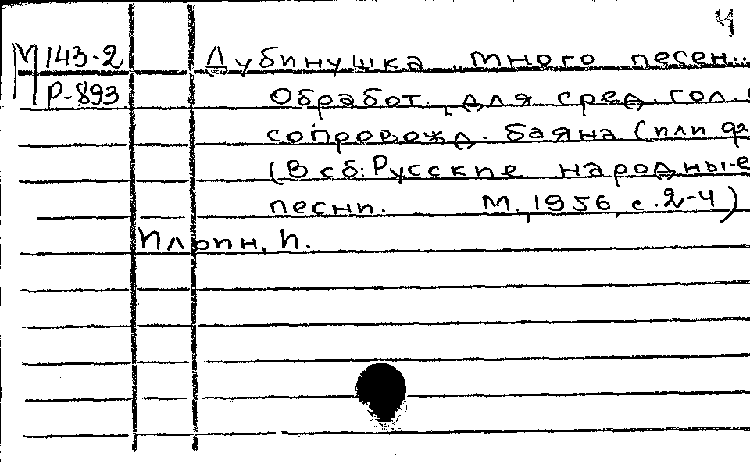 4
М 143-2 Дубинушка „Много песен...
Р-893 Обработ. для сред. гол.
сопровожд. баяна (или
(В сб: Русские народные
песни. М., 1956, с. 2-4)